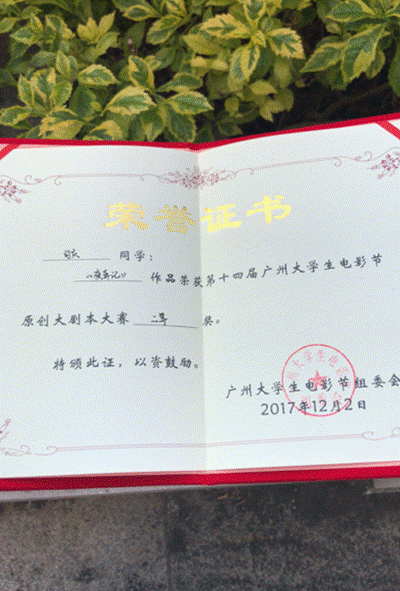 荣誉证书
同学：
作品荣获第十四届广州大学生电影节
原创大剧本大赛 二等 奖。
特颁此证，以资鼓励。
广州大学生电影节组委会
2017年12月2日